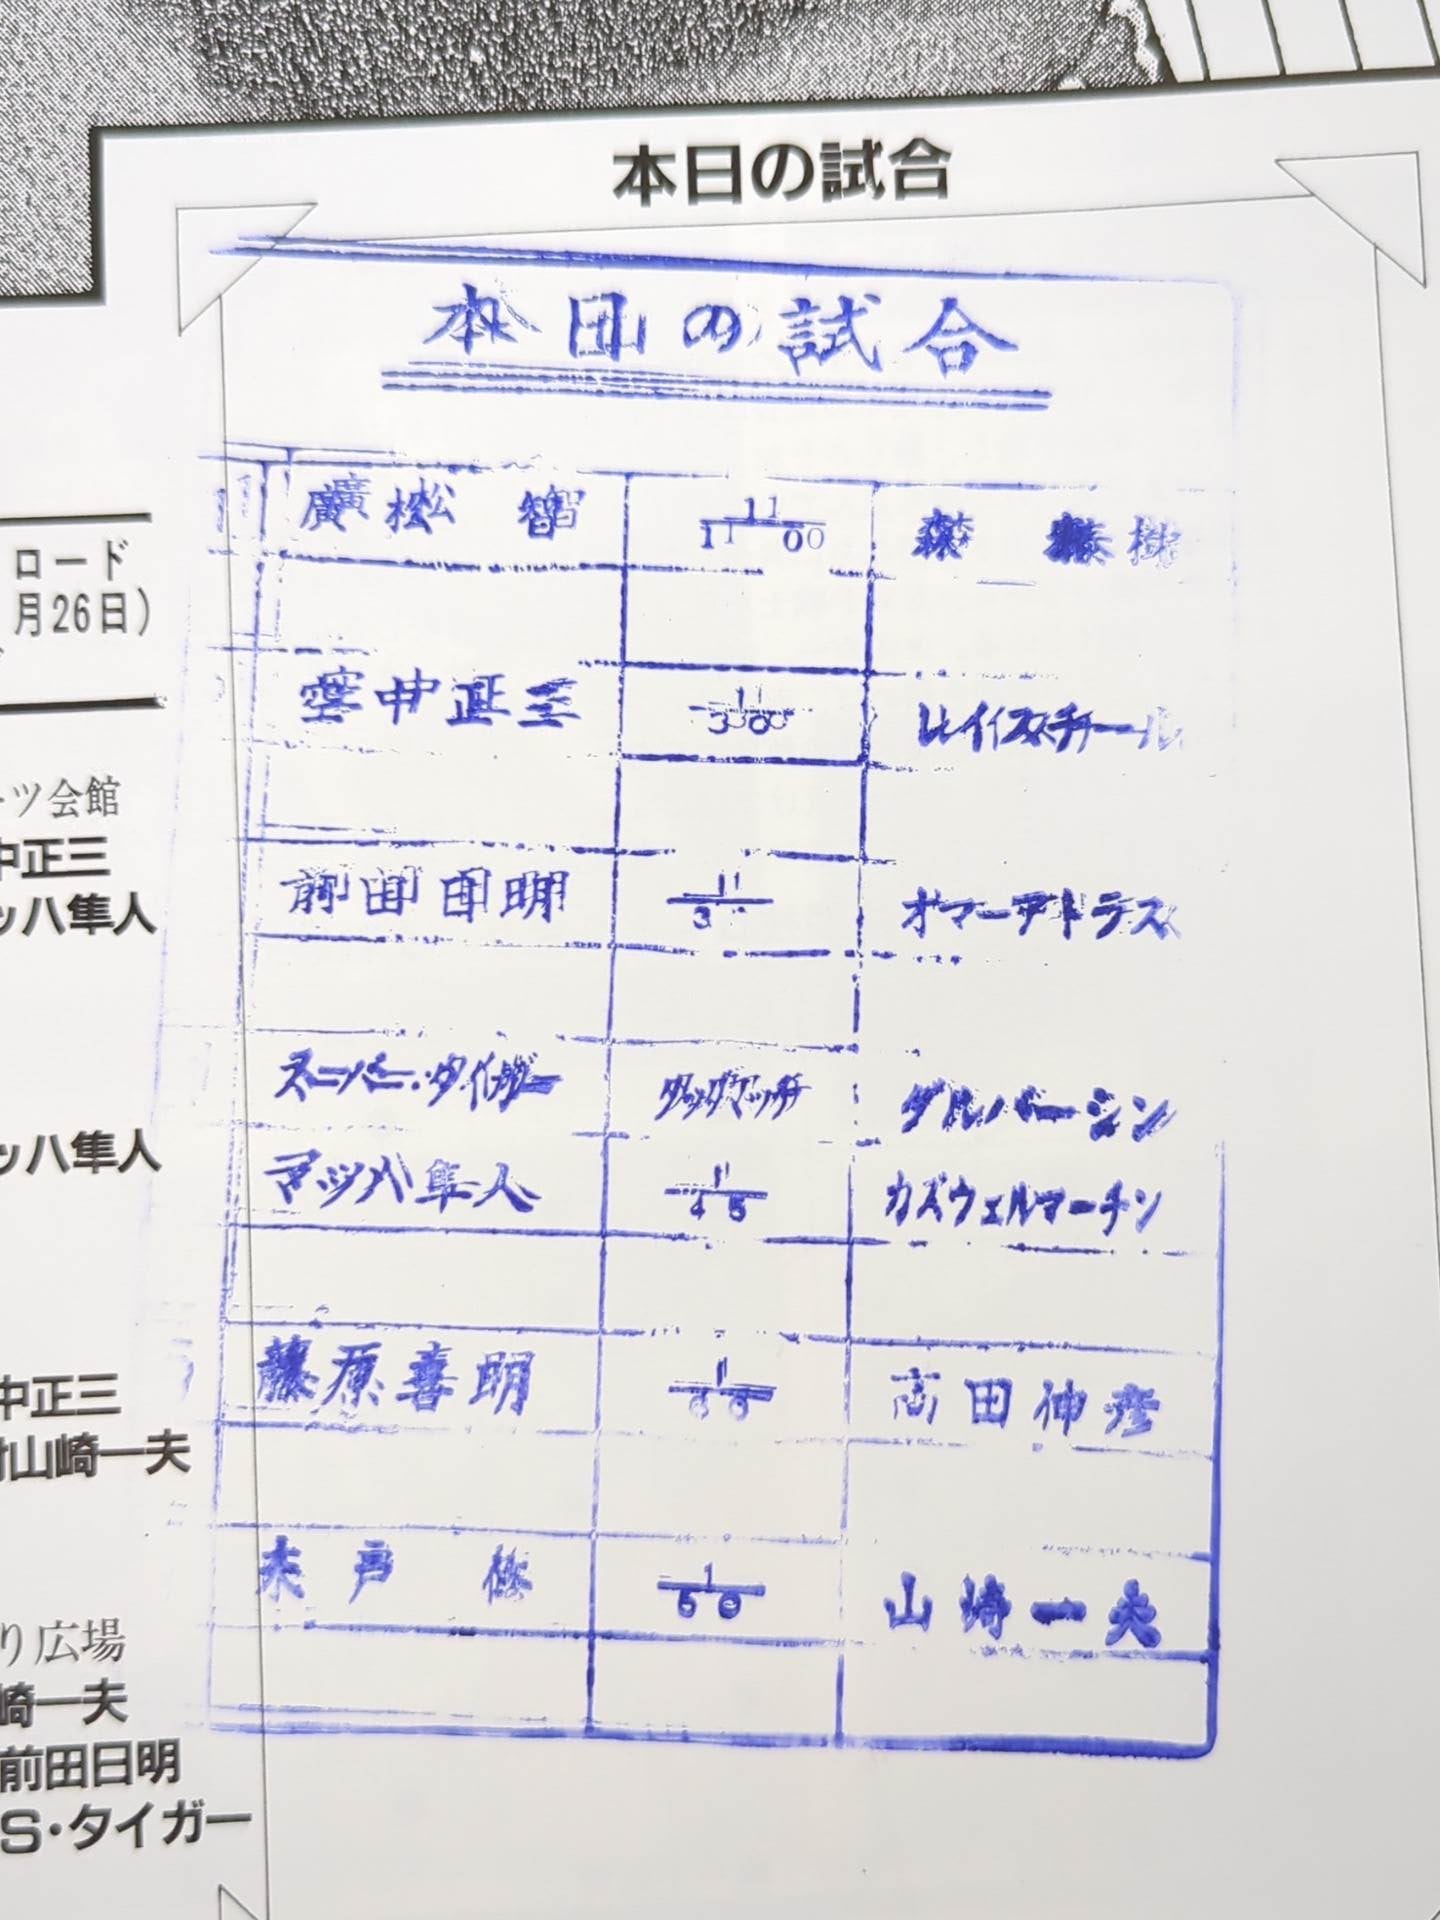 本日の試合
本日の試合
廣松 智 1/1 00 森 泰樹
空中正三 1/30 レイスチール
前田日明 1/3 オマーアトラス
スーパー・タイガー タッグマッチ ダルバーシン
マッハ隼人 1/45 カズウェルマーチン
藤原喜明 1/60 高田伸彦
木戸 修 1/60 山崎一夫
ロード
月26日)
ーツ会館
中正三
ッハ隼人
ッハ隼人
中正三
山崎一夫
り広場
崎一夫
前田日明
S・タイガー